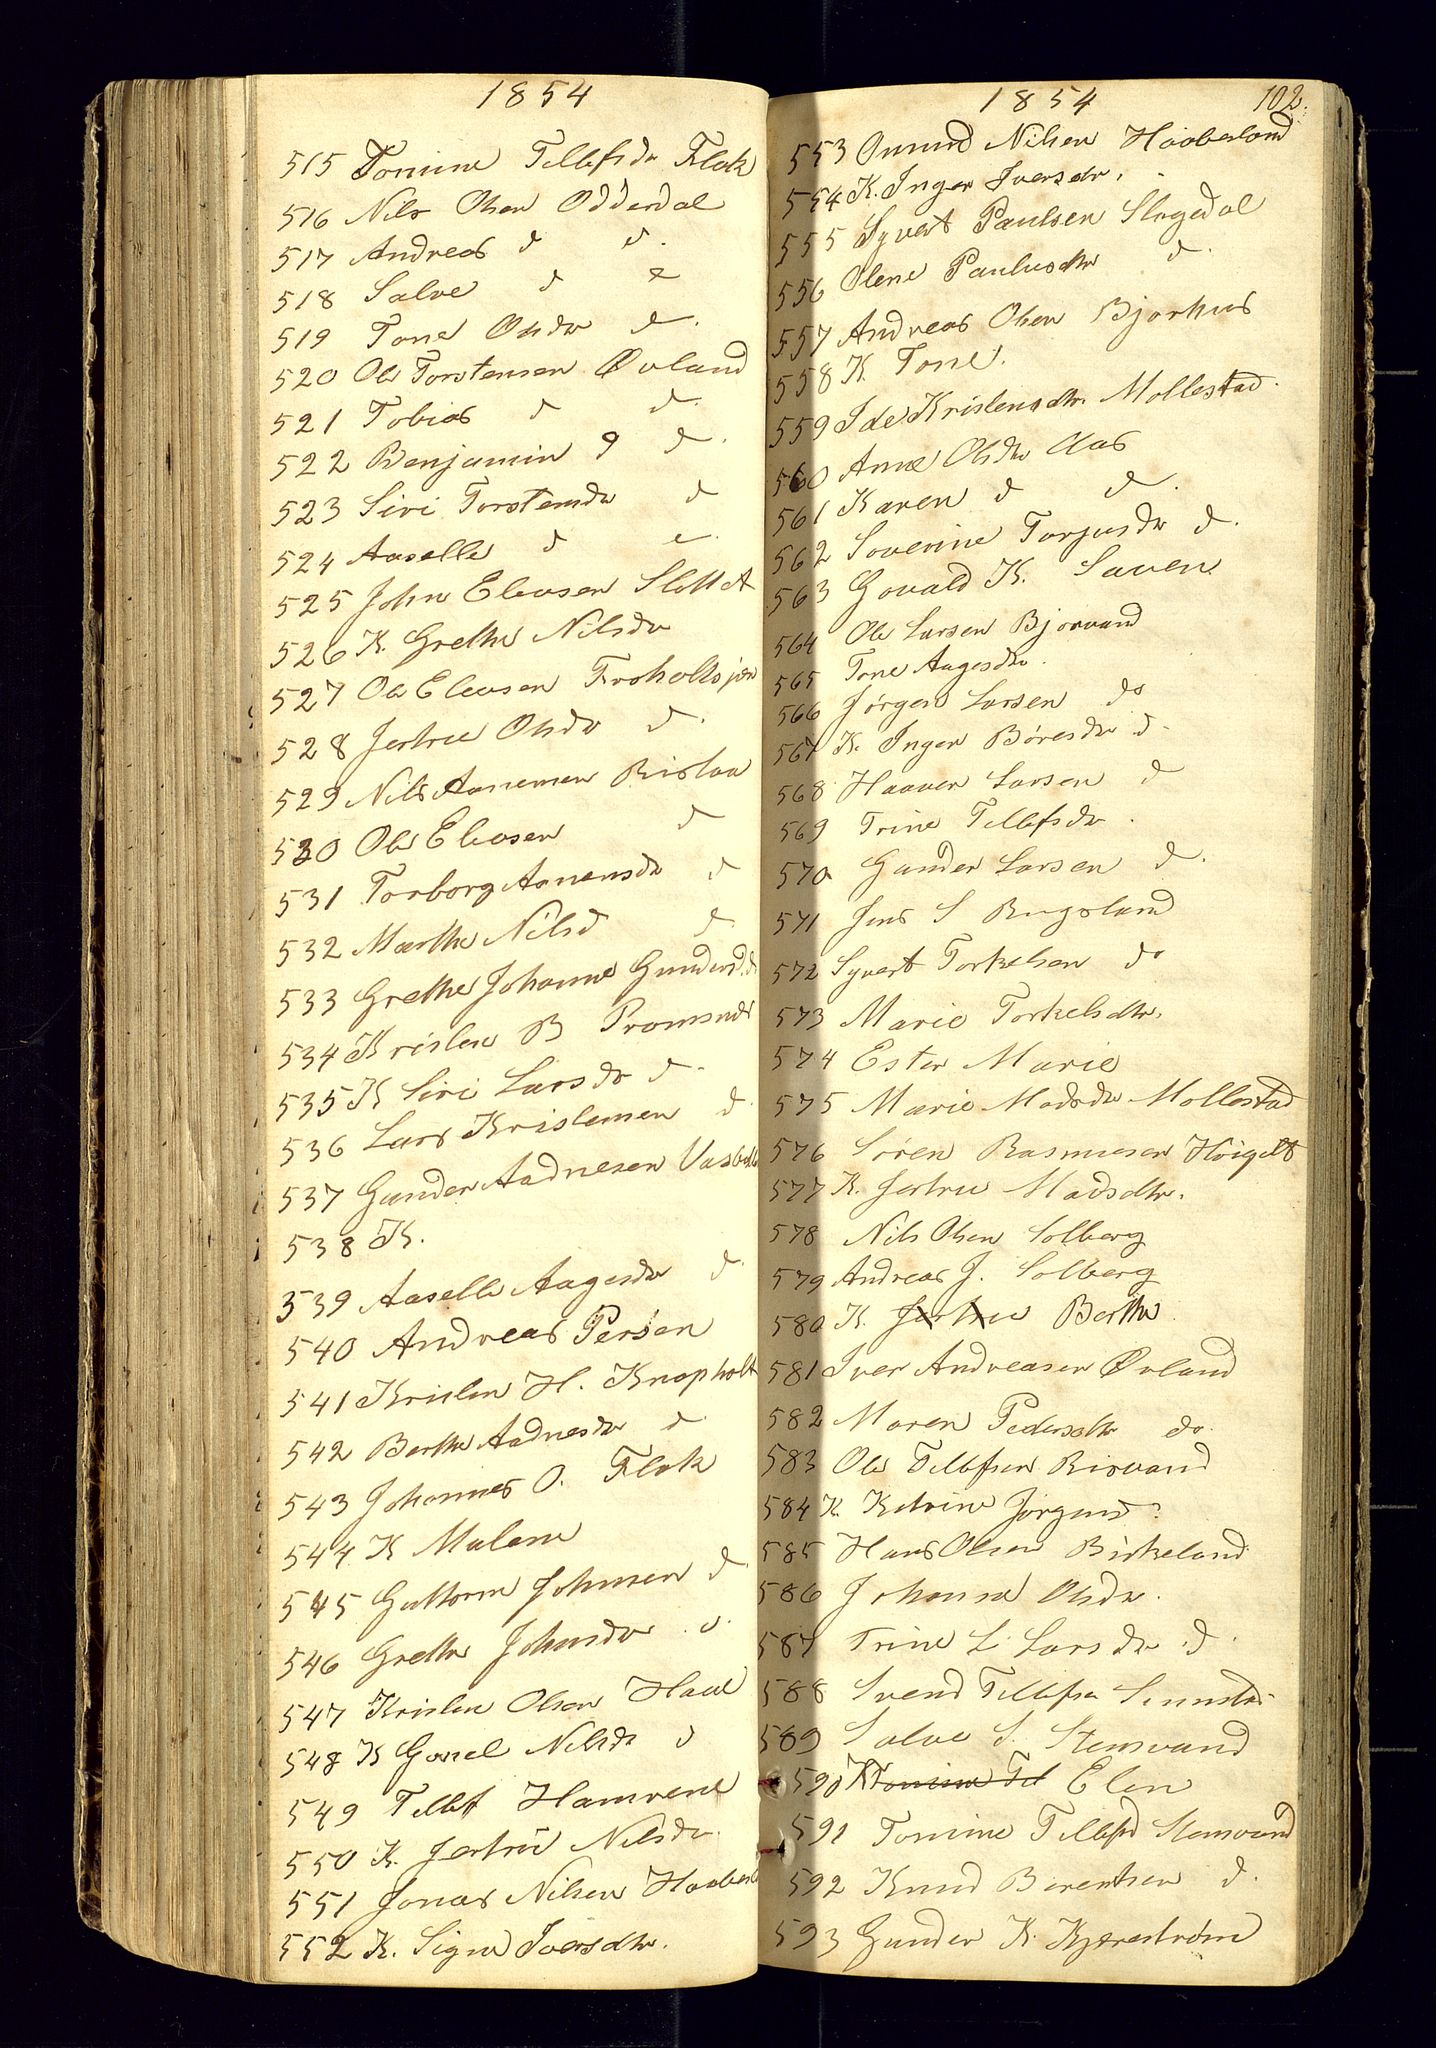 1854
515 Tomine Tellefsdr Flak
516 Nils Olsen Odderdal
517 Andreas d d.
518 Salve d d
519 Tone Olsdr d.
520 Ole Torstensen Øvland
521 Tobias d d.
522 Benjamin d d.
523 Siri Torstensdr d
524 Aaselle d d.
525 John Eleosen Slottet
526 K. Grethe Nilsdr
527 Ole Eleosen Froholtsjen
528 Jertrue Olsdr d.
529 Nils Aanensen Rislaa
530 Ole Eleosen d
531 Torborg Aanensdr d
532 Marthe Nilsd d
533 Grethe Johanne Gundersd. d
534 Kristen B Promsnes
535 K Siri Larsdr d.
536 Lars Kristensen d.
537 Gunder Aadnesen
538 K.
539 Aaselle Aagesdr d.
540 Andreas Persen
541 Kristen H. Knapholt
542 Berthe Aadnesdr d.
543 Johannes O. Flak
544 K Malene
545 Guttorm Johnsen d.
546 Grethe Johnsdr d.
547 Kristen Olsen Haae
548 K Gonel Nilsdr d
549 Tellef Hamrene
550 K. Jertrue Nilsdr.
551 Jonas Nilsen
552 K. Signe Iversdtr.
1854 102.
553 Omund Nilsen Haaberland
554 K. Inger Iversdtr.
555 Syvert Paulsen Slogedal
556 Olene Paulusdtr d.
557 Andreas Olsen Bjorhus
558 K. Tone.
559 Ide Kristensdtr. Mollestad.
560 Anne Olsdtr Aas
561 Karen d d.
562 Soverine Torjusdr d.
563 Govald K. Saven
564 Ole Larsen Bjorvand
565 Tone Aagesdtr.
566 Jørgen Larsen do
567 K. Inger Børesdr d.
568 Haaver Larsen d
569 Trine Tellefsdr.
570 Gunder Larsen d.
571 Jens S Rugsland
572 Syvert Torkelsen do
573 Marie Torkelsdtr.
574 Ester Marie
575 Marie Madsdr Mollestad
576 Søren Rasmusen Höigilt
577 K. Jertrue Madsdtr.
578 Nils Olsen Solberg
579 Andreas J. Solberg
580 K. Jertrue Berthe
581 Iver Andreasen Øvland
582 Maren Pedersdtr do.
583 Ole Tellefsen Risvand
584 K. Katrine Jørgensd.
585 Hans Olsen Birkeland
586 Johanne Olsdr.
587 Trine L. Larsdr d.
588 Svend Tellefsen
589 Salve S. Stemvand
590 K Tomine Tel Elen
591 Tomine Tellefsd Stemvand
592 Knud Berentsen d.
593 Gunder K. Kjerrstrøm